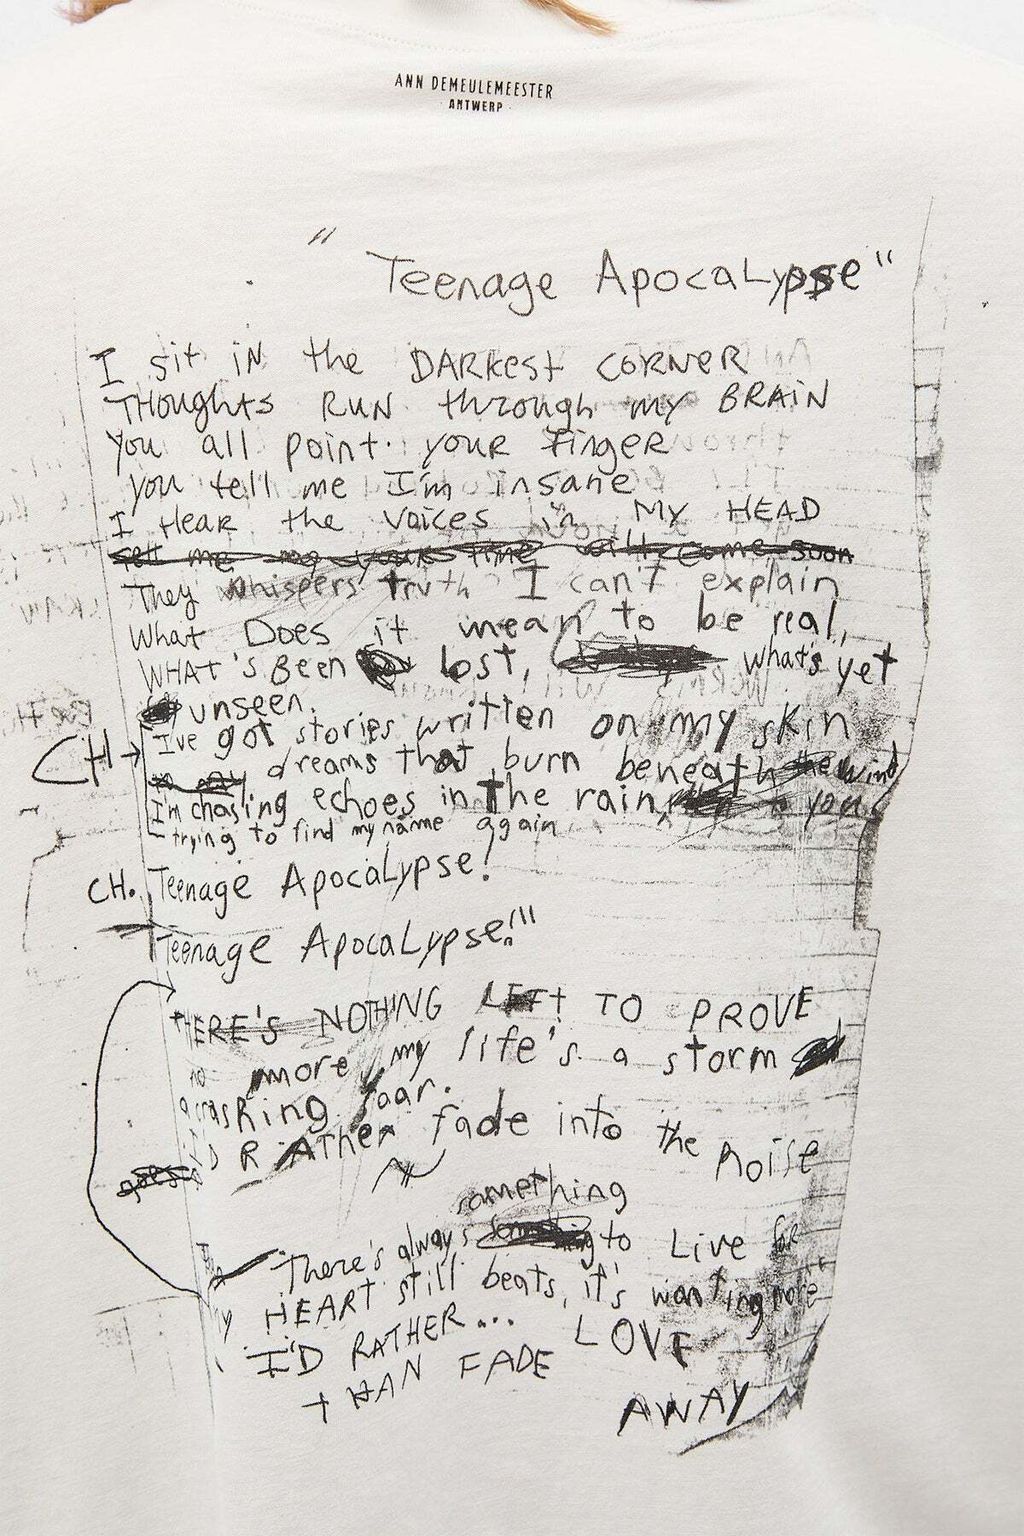 ANN DEMEULEMEESTER
ANTWERP
"Teenage Apocalypse"
I sit iN the DARKEst CORNER
THoughts RUN through my BRAiN
You all point your Finger
you tell me I'm insane
I Hear the voices in MY HEAD
tell me my your time will come soon
They whispers truth I can't explain
What Does it mean to be real,
WHAT'S BEEN lost, what's yet
unseen.
CH I've got stories written on my skin
in my dreams that burn beneath the wind
I'm chasing echoes in the rain, you
trying to find my name again
CH. Teenage Apocalypse!
Teenage Apocalypse!"
tHERE'S NOTHING LEFt TO PROVE
no more my life's a storm
a crasHing roar.
I'D RATHER fade into the noise
something
There's always something to Live for
my HEART still beats, it's wanting more
I'D RATHER... LOVE
tHAN FADE
AWAY